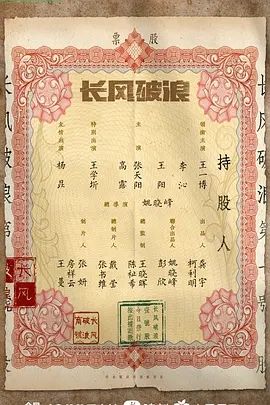 股票
长风破浪
持股人
领衔主演
王一博
李沁
主演
王阳
张天阳
高露
特别出演
王学圻
友情出演
杨
总导演
姚晓峰
出品人
龚宇
柯利明
联合出品人
姚晓峰
彭欣
总制片人
王晓晖
陈祉希
戴莹
制片人
张书维
张妍
房祥云
王曼
长风破浪第
长风
长风破浪